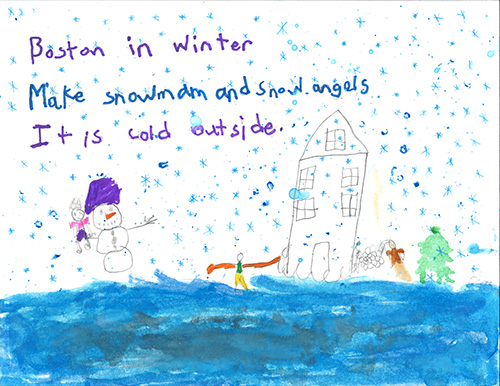 Boston in winter
Make snowmam and snow angels
It is cold outside.